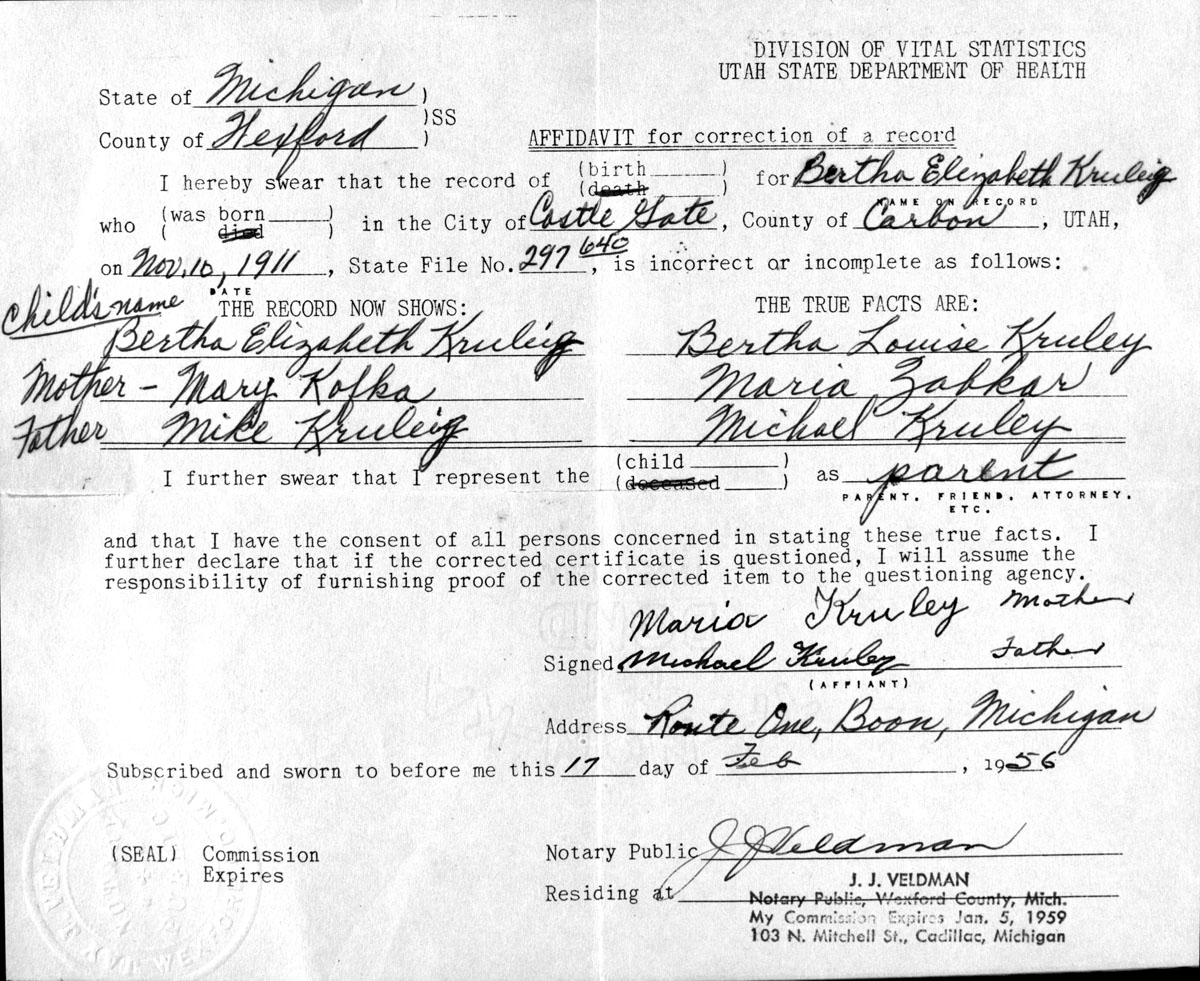 DIVISION OF VITAL STATISTICS
UTAH STATE DEPARTMENT OF HEALTH
State of Michigan )
)SS
County of Wexford )
AFFIDAVIT for correction of a record
I hereby swear that the record of (birth ) (death ) for Bertha Elizabeth Kruleig
NAME ON RECORD
who (was born ) ( died ) in the City of Castle Gate, County of Carbon, UTAH,
on Nov. 10, 1911, State File No. 297 640, is incorrect or incomplete as follows:
DATE
Child's name THE RECORD NOW SHOWS: THE TRUE FACTS ARE:
Bertha Elizabeth Kruleig Bertha Louise Kruley
Mother - Mary Kofka Maria Zabkar
Father Mike Kruleig Michael Kruley
I further swear that I represent the (child ) (deceased ) as parent
PARENT, FRIEND, ATTORNEY, ETC.
and that I have the consent of all persons concerned in stating these true facts. I
further declare that if the corrected certificate is questioned, I will assume the
responsibility of furnishing proof of the corrected item to the questioning agency.
Maria Kruley Mother
Signed Michael Kruley Father
(AFFIANT)
Address Route One, Boon, Michigan
Subscribed and sworn to before me this 17 day of Feb, 1956
(SEAL) Commission Expires
Notary Public J J Veldman
Residing at
J. J. VELDMAN
Notary Public, Wexford County, Mich.
My Commission Expires Jan. 5, 1959
103 N. Mitchell St., Cadillac, Michigan